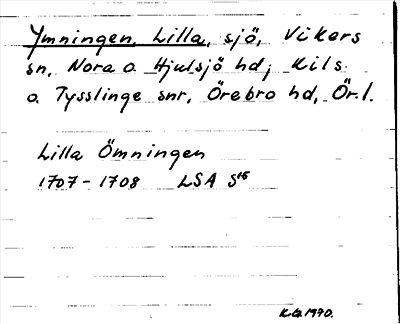 Ymningen, Lilla, sjö, Vikers
sn, Nora o. Hjulsjö hd; Kils
o. Tysslinge snr, Örebro hd, Ör.l.
Lilla Ömningen
1707-1708 LSA S
K.G. 1970.